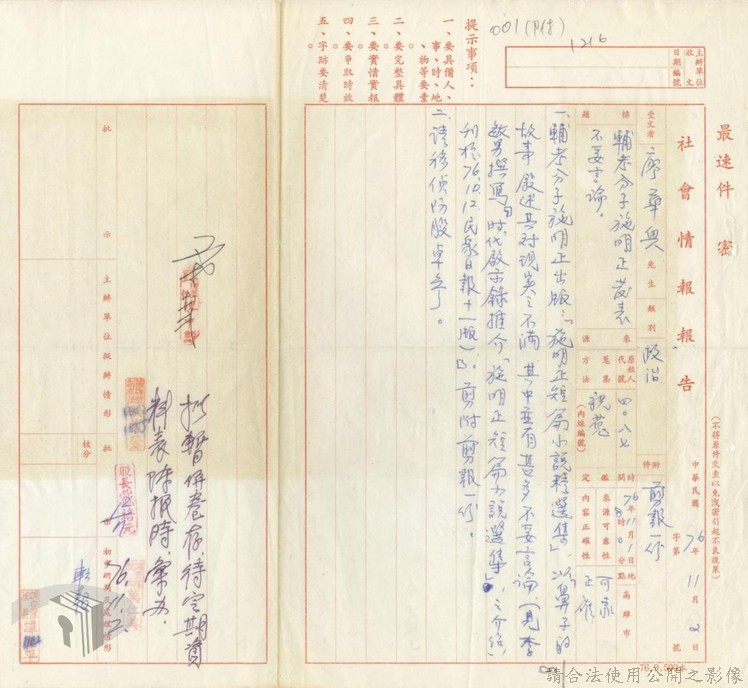 最速件 密
社會情報報告
(不得原件交查以免洩密引起不良後果)
中華民國76年11月2日
字第 號
受文者 廖華興 先生
類別 政治
附件 剪報一份
標題 輔考分子施明正發表不妥言論。
來源
原報人代號 四〇八七
蒐集方法 視蒐
(內線編號)
時間 76年11月1日 8時0分
地點 高雄市
鑑定
來源可靠性 可靠
內容正確性 正確
一、輔考分子施明正出版之「施明正短篇小說精選集」,以鼻子的
故事 敘述其對現実之不滿,其中並有甚多不妥言論,(見李
敏勇撰寫的時代啟示錄推介「施明正短篇小說選集」之介紹,
刊於76.10.12.民眾日報十一版)B。剪附剪報一份。
二、請移偵防股卓參。
主辦單位
收文
日期編號
1216
001(附件)
提示事項:
一、要具備人、事、時、地、物等要素
二、要完整具體
三、要實情實報
四、要爭取時效
五、字跡要清楚
批示
主辦單位擬辦情形
批示
核分
初審研判
擬暫併卷存,待定期資
料表陳報時,彙办
76.11.2.
股長
76.9.500本
請合法使用公開之影像